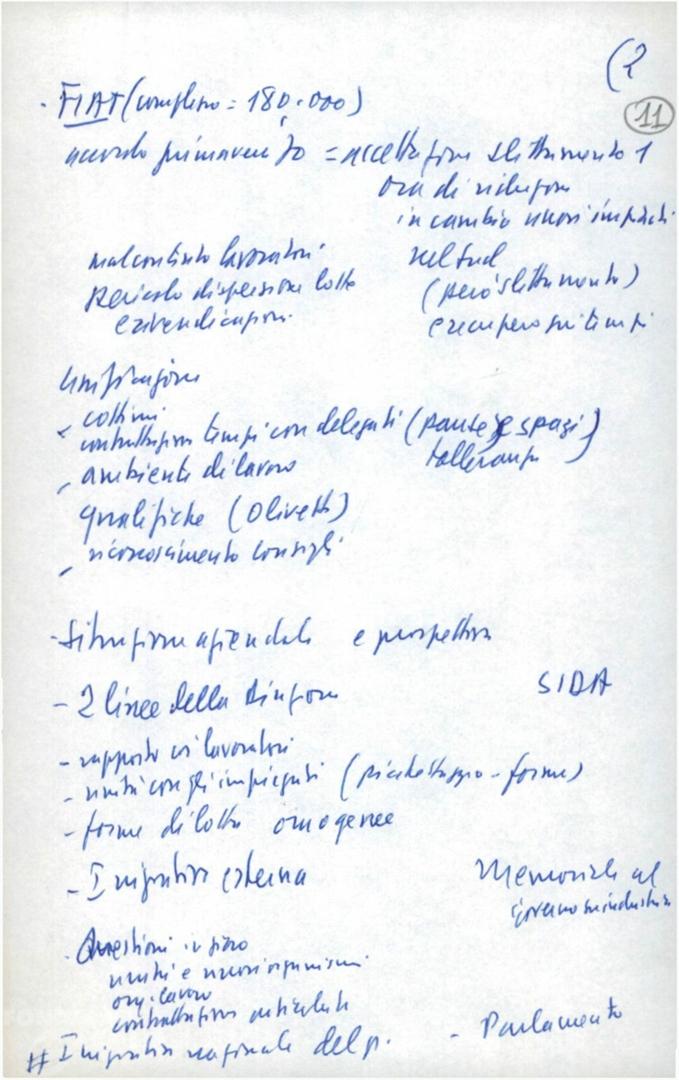 (2
11
· FIAT (complesso = 180.000)
accordo primavera 70 = accettazione slittamento 1
ora di riduzione
in cambio nuovi impianti
nel sud
malcontento lavoratori
(però slittamento)
pericolo dispersione lotte
e rivendicazioni
e recupero sui tempi
Unificazione
- cottimi
contrattazione tempi con delegati (pause) e spazi)
tolleranza
- ambiente di lavoro
qualifiche (Olivetti)
- riconoscimento consigli
- Situazione aziendale e prospettiva
- 2 linee della direzione
SIDA
- rapporto coi lavoratori
- unità con gli impiegati (picchettaggio - forme)
- forme di lotta omogenee
- Iniziativa esterna
Memoriale al
governo su industria
- Questioni in piano
unità e nuovi organismi
org. lavoro
contrattazione articolata
# Iniziativa nazionale del p. - Parlamento